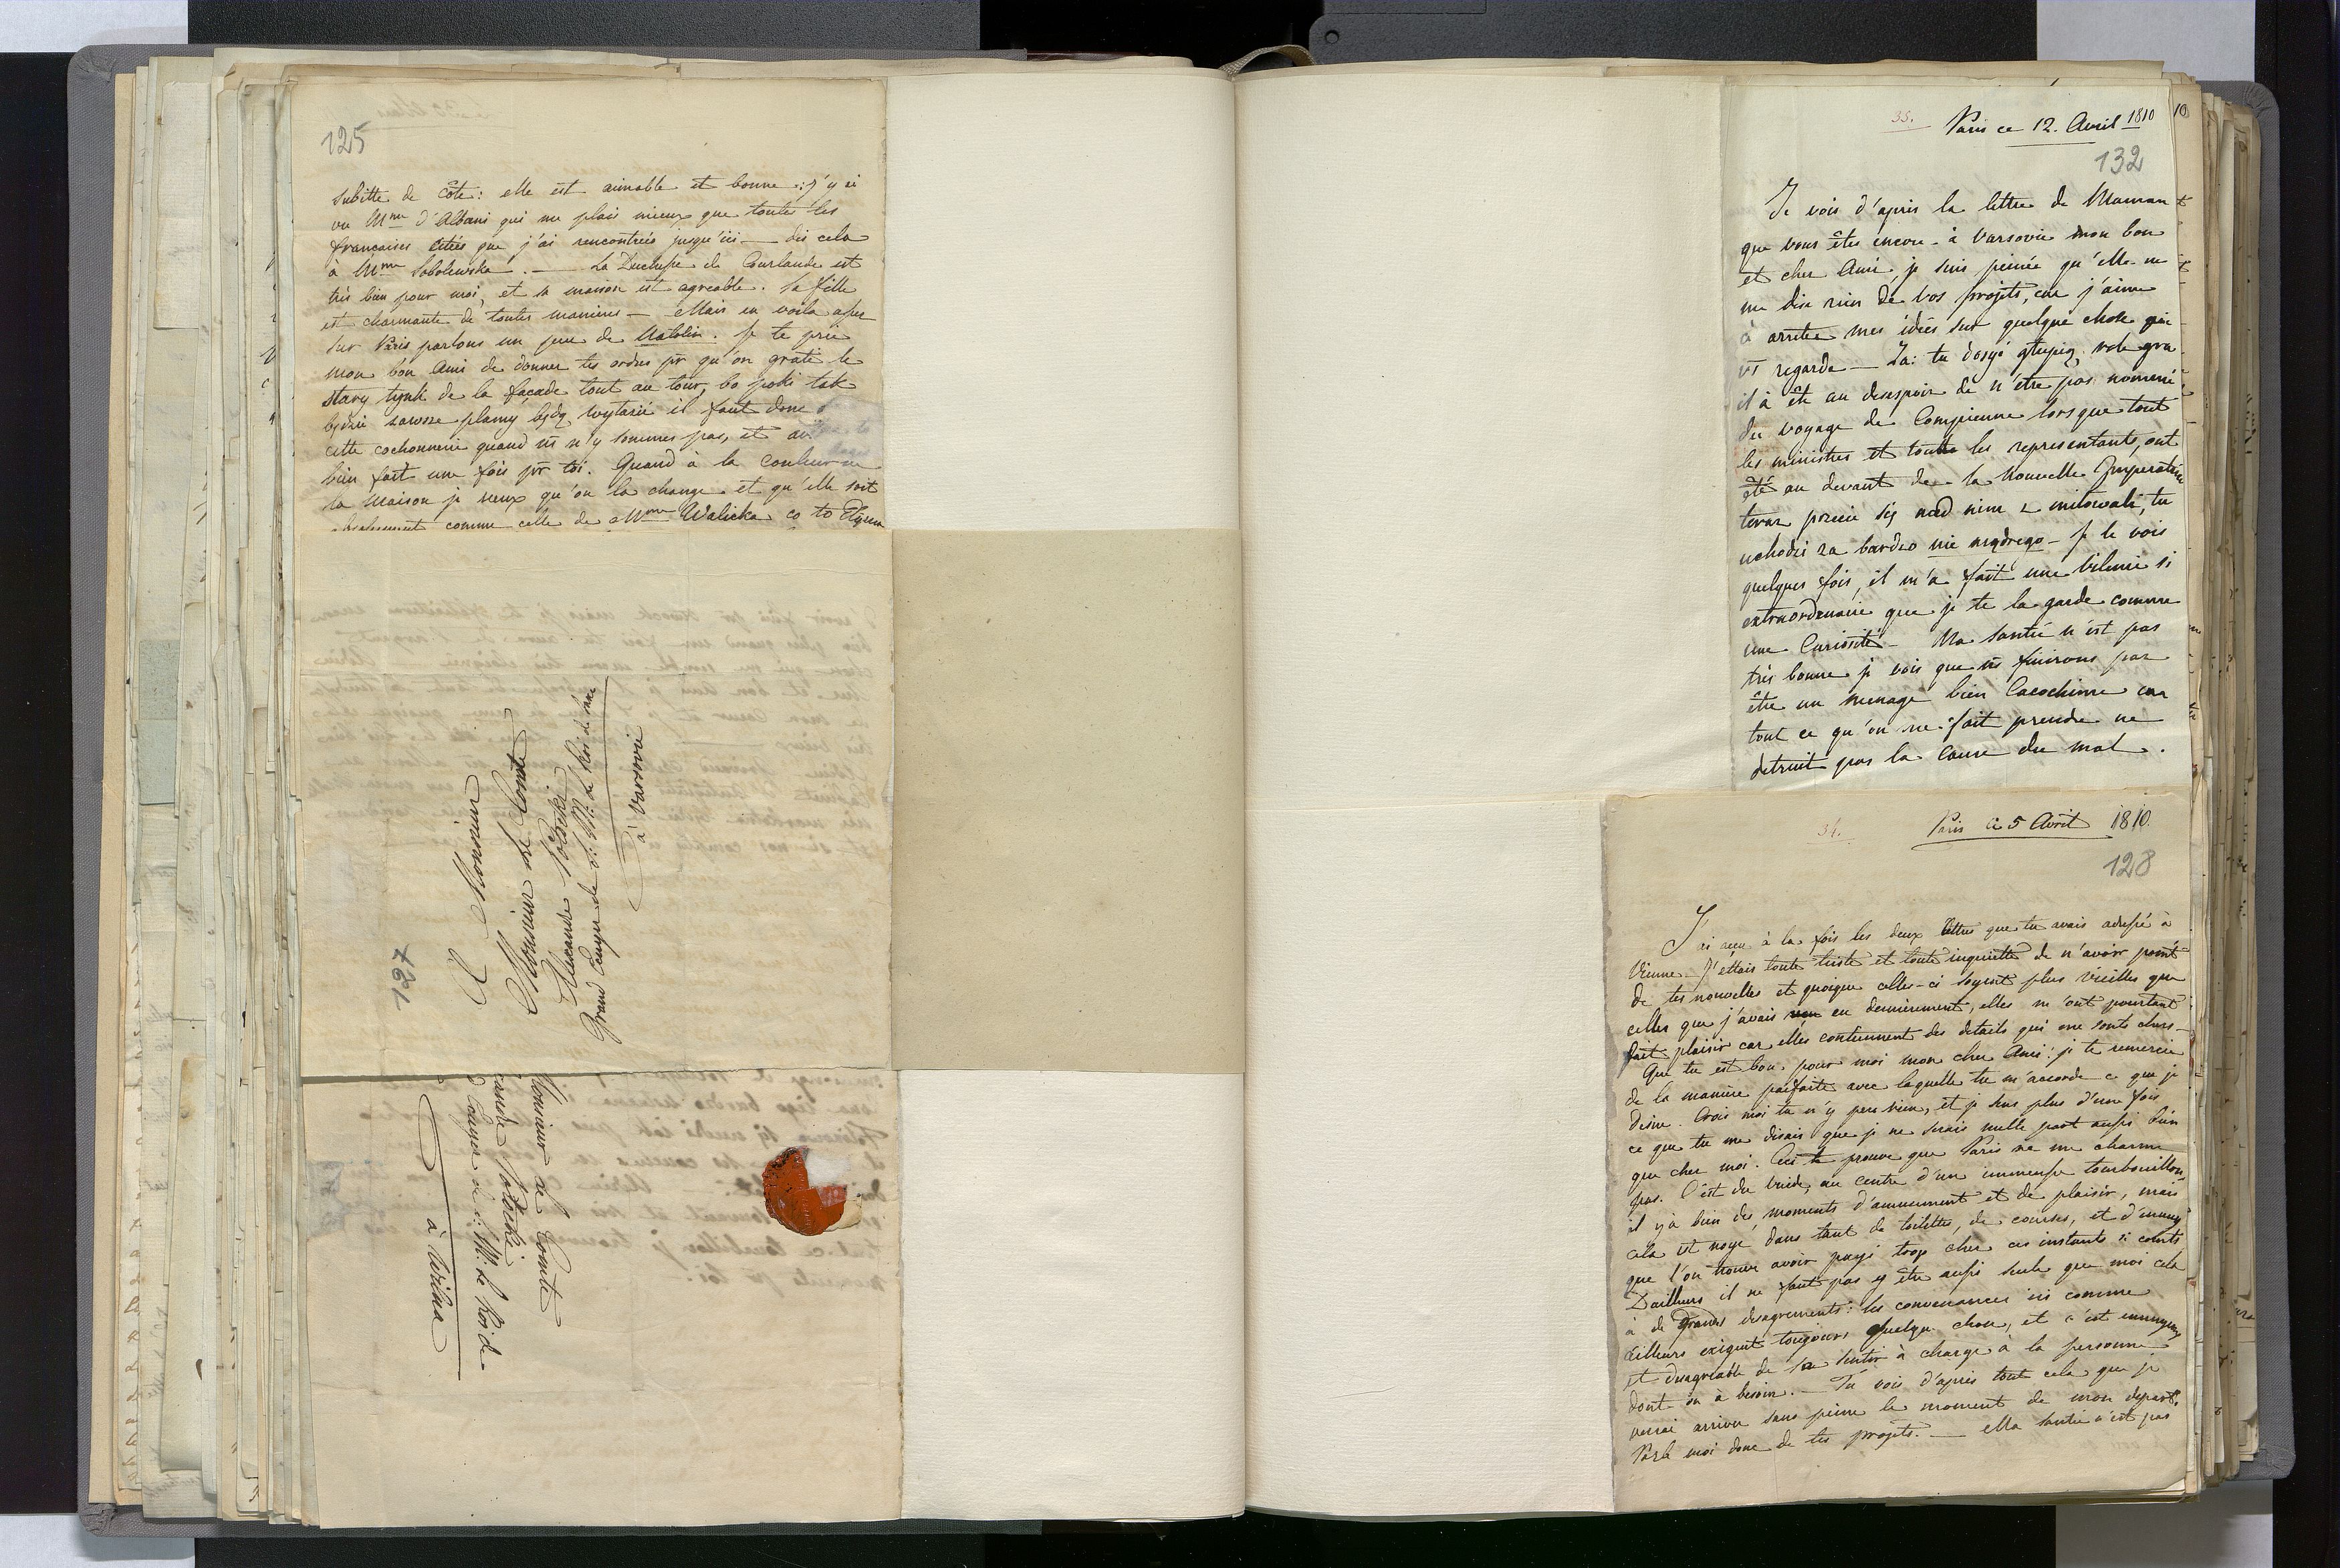 125
subitte de Côte: elle est aimable et bonne: j'y ai
vu Mme d'Albani qui me plais mieux que toutes les
françaises citées que j'ai rencontrées jusqu'ici — dis cela
à Mme Sobolewska. — La Duchesse de Courlande est
très bien pour moi, et sa maison est agreable. Sa fille
est charmante de toutes manieres — Mais en voila assez
sur Paris parlons un peu de Natolin. Je te prie
mon bon Ami de donner tes ordres pr qu'on grate le
stary tynk de la façade tout au tour, bo poki tak
będzie zawsze plamy będą wyłazić il faut donc
cette cochonnerie quand ns n'y sommes pas, et
bien fait une fois pr toi. Quand à la couleur de
la Maison je veux qu'on la change et qu'elle soit
comme celle de Mme Walicka co to
127
A Monsieur
Monsieur le Comte
Alexandre Potocki
Grand Ecuyer de S: M: le Roi de Saxe
à Varsovie
Monsieur le Comte
Potocki
Ecuyer de S: M: le Roi de
à
35.
Paris ce 12. Avril 1810
10
132
Je vois d'apris la lettre de Maman
que vous êtes encore à Varsovie mon bon
et cher Ami, je suis peinée qu'elle ne
me dise rien de vos projets, car j'aime
à arrêter mes idées sur quelque chose qui
vs regarde — Za: tu dosyć głupią role gra
il à été au desespoir de n'être pas nommé
du voyage de Compienne lorsque tout
les ministres et toutes les representants, ont
été au devant de la Nouvelle Imperatrice
teraz przecie się nad nim z mitowali, tu
uchodzi za bardzo nie mądrego — Je le vois
quelques fois, il m'a fait une vilenie si
extraordinaire que je te la garde comme
une Curiosité — Ma Santé n'est pas
très bonne je vois que ns finirons par
être un menage bien Cacochime car
tout ce qu'on me fait prendre ne
detruit pas la cause du mal.
34.
Paris ce 5 Avril 1810.
128
J'ai reçu à la fois les deux lettres que tu avais adressé à
Vienne. J'étais toute triste et toute inquiette de n'avoir point
de tes nouvelles et quoique celles-ci soyent plus vieilles que
celles que j'avais eu dernièrement, elles m'ont pourtant
fait plaisir car elles contiennent des details qui me sonts chers.
Que tu est bon pour moi mon cher Ami! je te remercie
de la manière parfaite avec laquelle tu m'accorde ce que je
desire. Crois moi tu n'y pers rien, et je sens plus d'une fois
ce que tu me disais que je ne serais nulle part aussi bien
que chez moi. Ceci te prouve que Paris ne me charme
pas. C'est du vuide, au centre d'un immense tourbouillon
il y à bien des moments d'amusement et de plaisir, mais
cela est noyé dans tant de toilettes, de courses, et d'ennuy
que l'on trouve avoir payé trop cher ces instants si courts
Dailleurs il ne faut pas y être aussi seule que moi cela
à de grands desagrements: les convenances ici comme
ailleurs exigent toujours quelque chose, et c'est ennuyeux
et desagréable de se sentir à charge à la personne
dont on à besoin. — Tu vois d'après tout cela que je
verrai arriver sans peine le moment de mon depart.
Parle moi donc de tes projets. — Ma Santé n'est pas